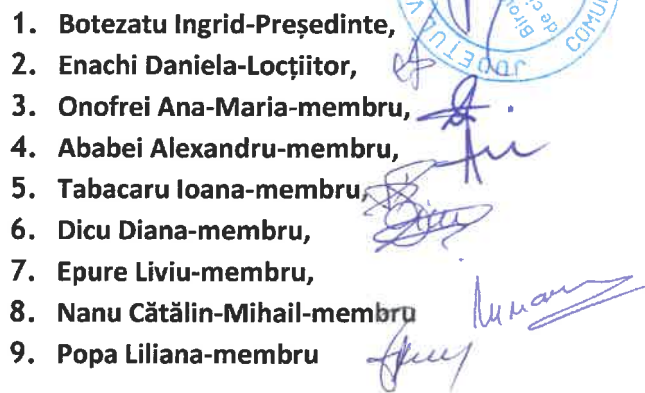 1. Botezatu Ingrid-Președinte,
2. Enachi Daniela-Locțiitor,
3. Onofrei Ana-Maria-membru,
4. Ababei Alexandru-membru,
5. Tabacaru Ioana-membru,
6. Dicu Diana-membru,
7. Epure Liviu-membru,
8. Nanu Cătălin-Mihail-membru
9. Popa Liliana-membru
JUDEȚUL V
COMUN
Birou
de ci